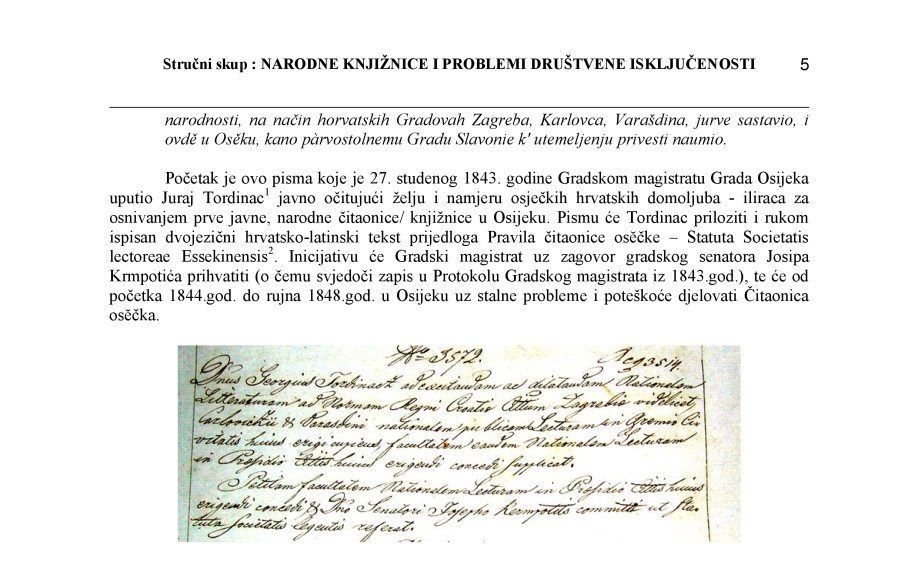 Stručni skup : NARODNE KNJIŽNICE I PROBLEMI DRUŠTVENE ISKLJUČENOSTI 5
narodnosti, na način horvatskih Gradovah Zagreba, Karlovca, Varašdina, jurve sastavio, i
ovdě u Osěku, kano pàrvostolnemu Gradu Slavonie k' utemeljenju privesti naumio.
Početak je ovo pisma koje je 27. studenog 1843. godine Gradskom magistratu Grada Osijeka
uputio Juraj Tordinac1 javno očitujući želju i namjeru osječkih hrvatskih domoljuba - iliraca za
osnivanjem prve javne, narodne čitaonice/ knjižnice u Osijeku. Pismu će Tordinac priloziti i rukom
ispisan dvojezični hrvatsko-latinski tekst prijedloga Pravila čitaonice osěčke – Statuta Societatis
lectoreae Essekinensis2. Inicijativu će Gradski magistrat uz zagovor gradskog senatora Josipa
Krmpotića prihvatiti (o čemu svjedoči zapis u Protokolu Gradskog magistrata iz 1843.god.), te će od
početka 1844.god. do rujna 1848.god. u Osijeku uz stalne probleme i poteškoće djelovati Čitaonica
osěčka.
No 3572. 3514.
Dnus Georgius Tordinacz ad excitandam ac dilatandam Nationalem
Litteraturam ad Normam Regni Croatiae Zagrabia videlicet,
Carlovitzii & Varasdini nationalem publicam Lecturam in Gremio Ci
vitatis hujus erigi cupiens, facultatem eandem Nationalem Lecturam
in Praesidio hujus erigendi concedi supplicat.
facultatem Nationalem Lecturam in Praesidio hujus
erigendi concedi & Dno Senatori Josepho Kermpotits committi ut Sta-
tuta Societatis Legentis referat.